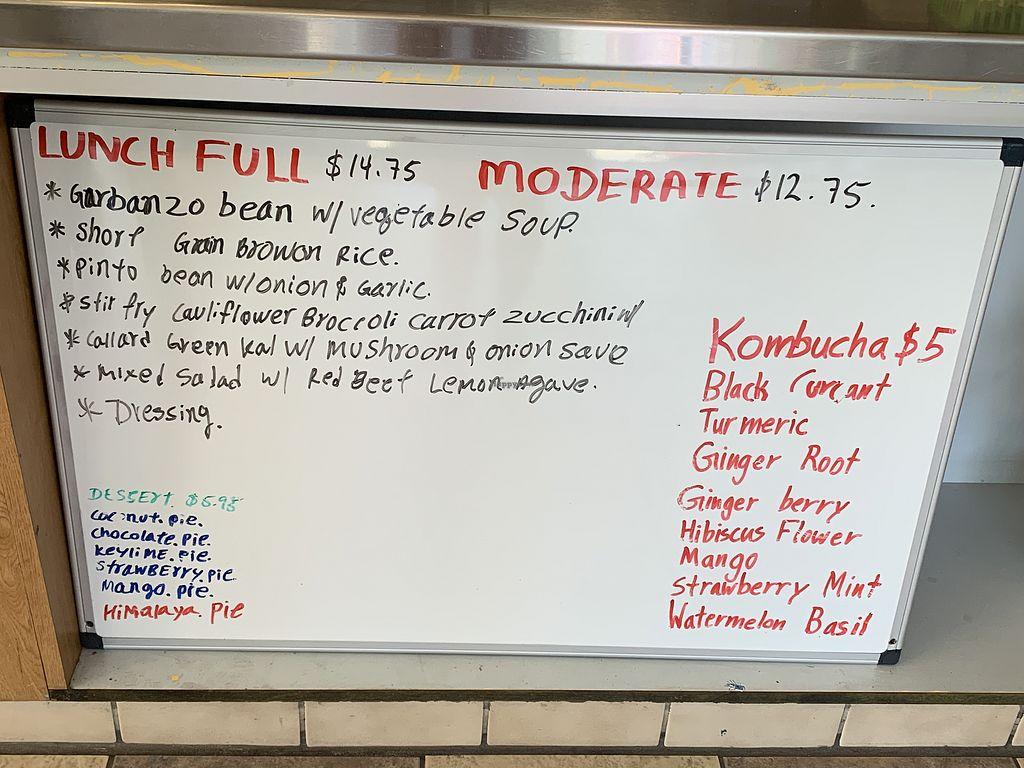 LUNCH FULL $14.75 MODERATE $12.75.
* Garbanzo bean w/ vegetable Soup.
* Short Grain Browon Rice.
* Pinto bean w/onion & Garlic.
* Stir fry Cauliflower Broccoli Carrot Zucchini w/
* Collard Green Kal w/ Mushroom & onion Save
* Mixed Salad w/ Red Beet Lemon Agave.
* Dressing.
Dessert. $5.95
Coconut. pie.
Chocolate. Pie.
KeyliME. Pie.
StrawBerry. pie
Mango. pie.
HiMalaya. Pie
Kombucha $5
Black Currant
Turmeric
Ginger Root
Ginger berry
Hibiscus Flower
Mango
Strawberry Mint
Watermelon Basil